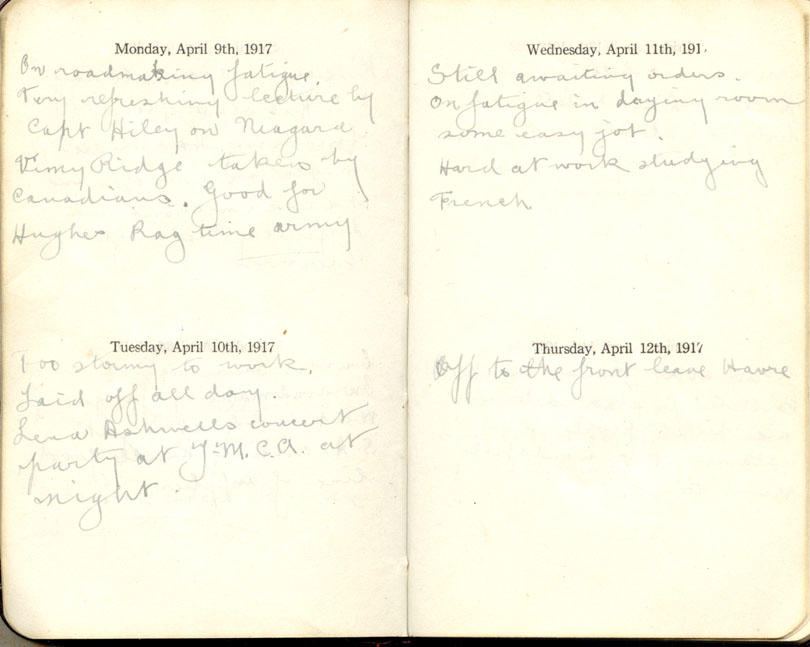 Monday, April 9th, 1917
On roadmaking fatigue.
Very refreshing lecture by
Capt Hiley on Niagara
Vimy Ridge taken by
Canadians. Good for
Hughes Rag time army
Tuesday, April 10th, 1917
Too stormy to work.
Laid off all day.
Lena Ashwells concert
party at Y.M.C.A. at
night.
Wednesday, April 11th, 191
Still awaiting orders.
On fatigue in drying room
some easy jot.
Hard at work studying
French
Thursday, April 12th, 1917
Off to the front leave Havre